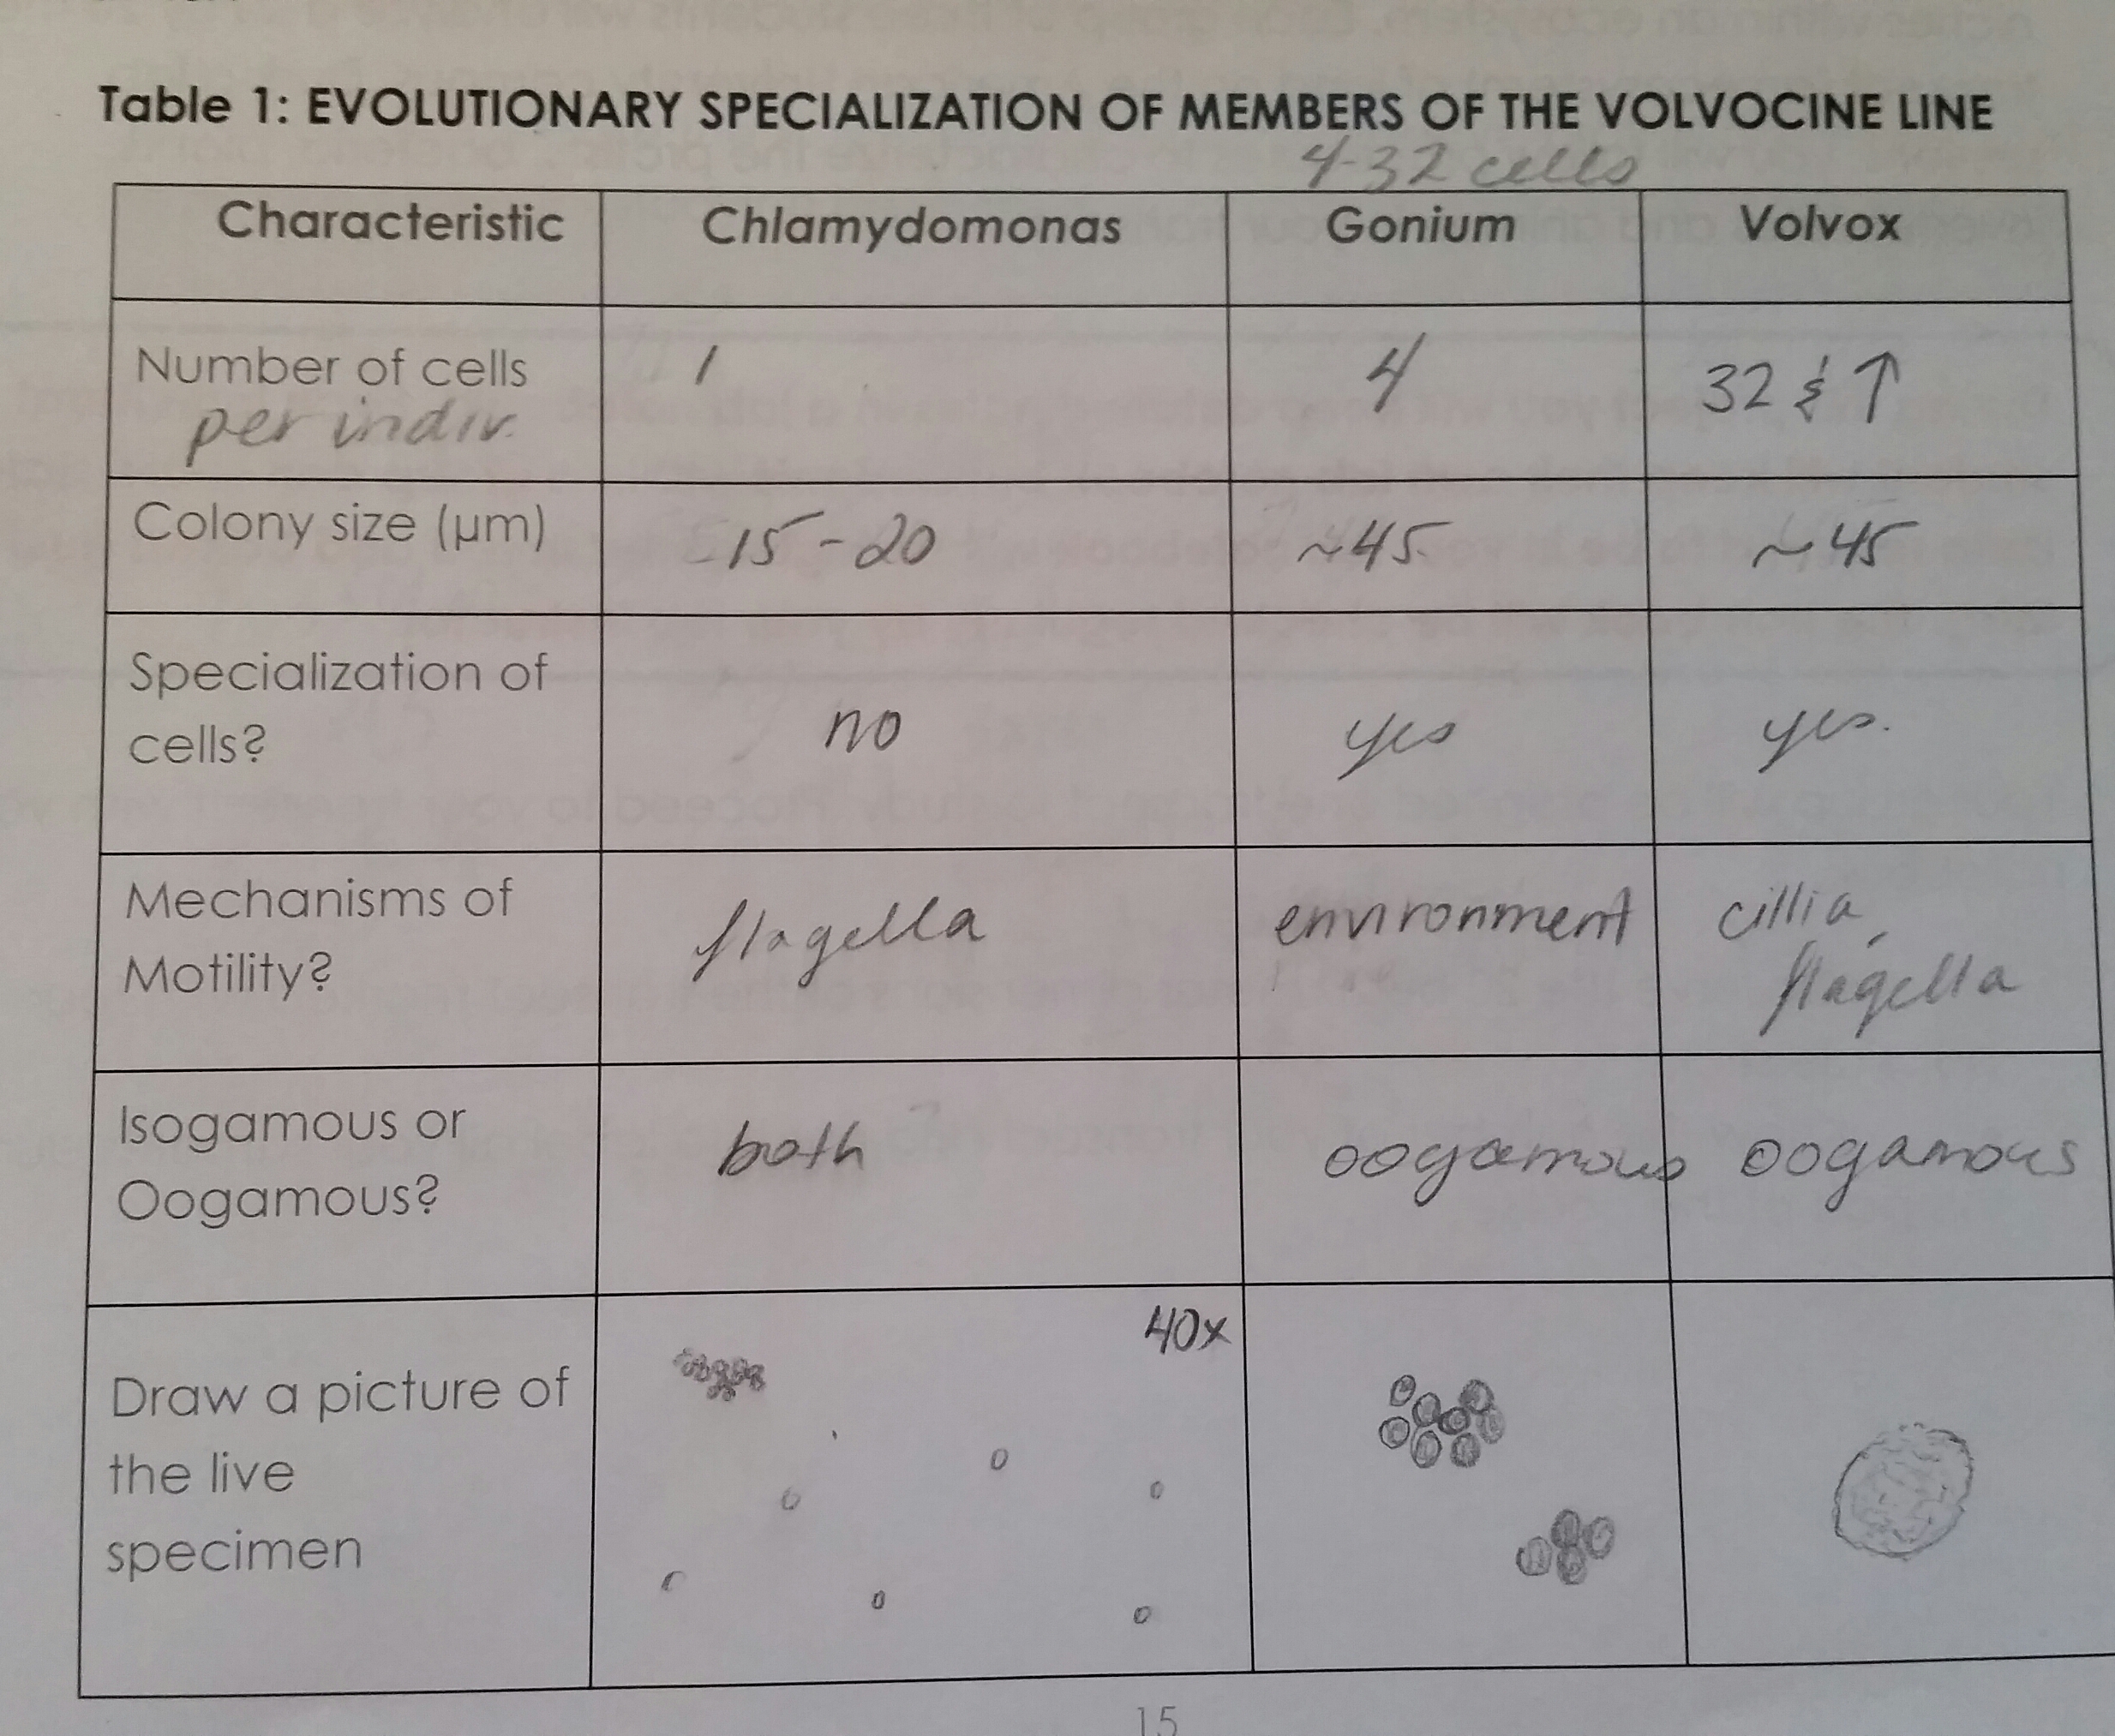 Table 1: EVOLUTIONARY SPECIALIZATION OF MEMBERS OF THE VOLVOCINE LINE
4-32 cells
Characteristic Chlamydomonas Gonium Volvox
Number of cells
per indiv.
1 4 32 & ↑
Colony size (µm) 15-20 ~45 ~45
Specialization of
cells?
no yes yes.
Mechanisms of
Motility?
flagella environment cillia,
flagella
Isogamous or
Oogamous?
both oogamous oogamous
40x
Draw a picture of
the live
specimen
15